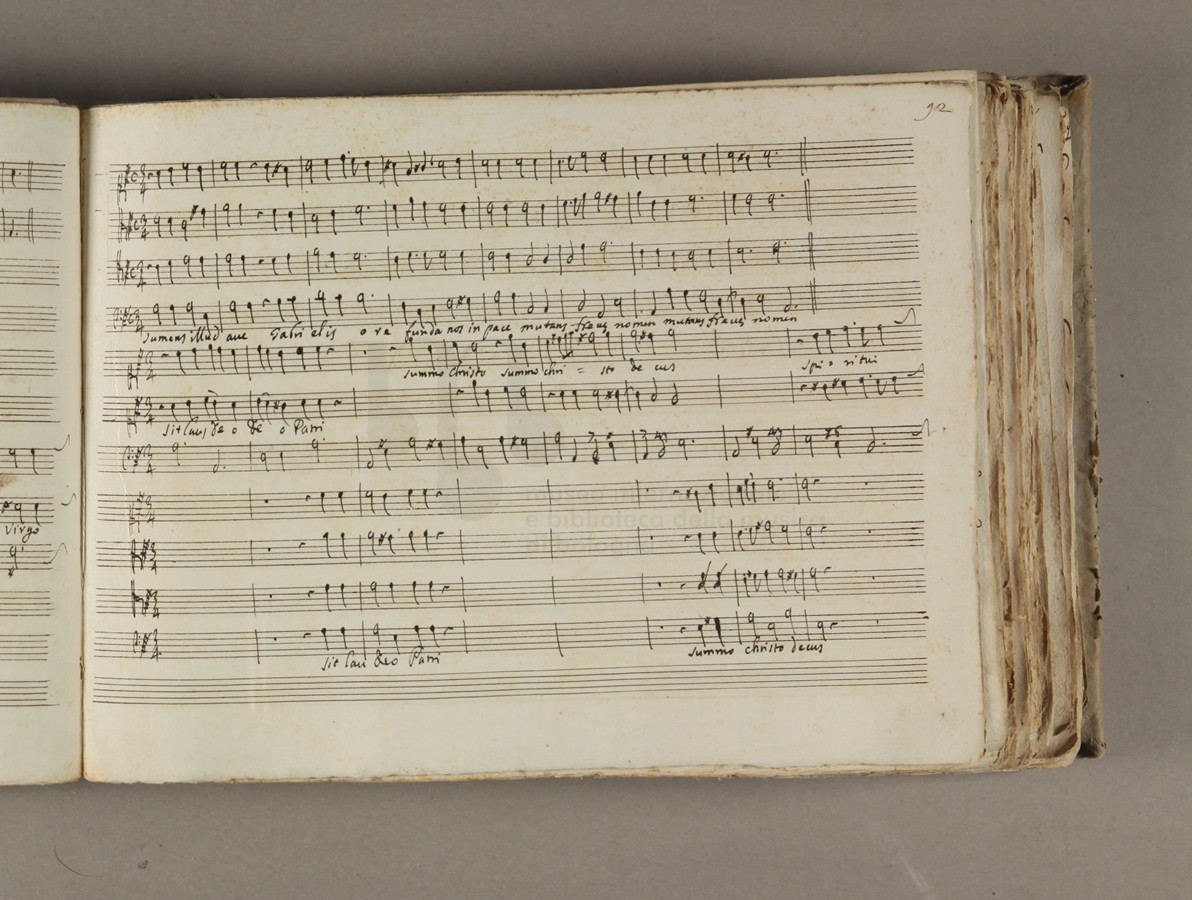 92
Sumens illud ave Gabrielis ore funda nos in pace mutans Evae nomen mutans Evae nomen
summo Christo summo chri = sto de cus spi = ritui
Sit laus de o de o Patri
museo
e biblioteca della musica
di bologna
Sit laus deo Patri summo christo decus
virgo